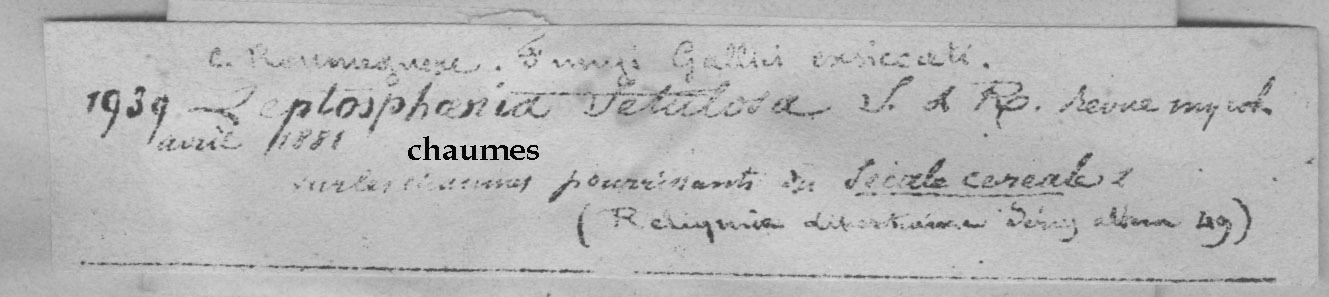 C. Roumeguere. Fungi Gallici exsiccati.
1939 Leptosphaeria Setulosa S. et R. Revue mycol.
avril 1881
chaumes
sur les chaumes pourrissants du Secale cereale
(Reliquiae Libertianae 49)